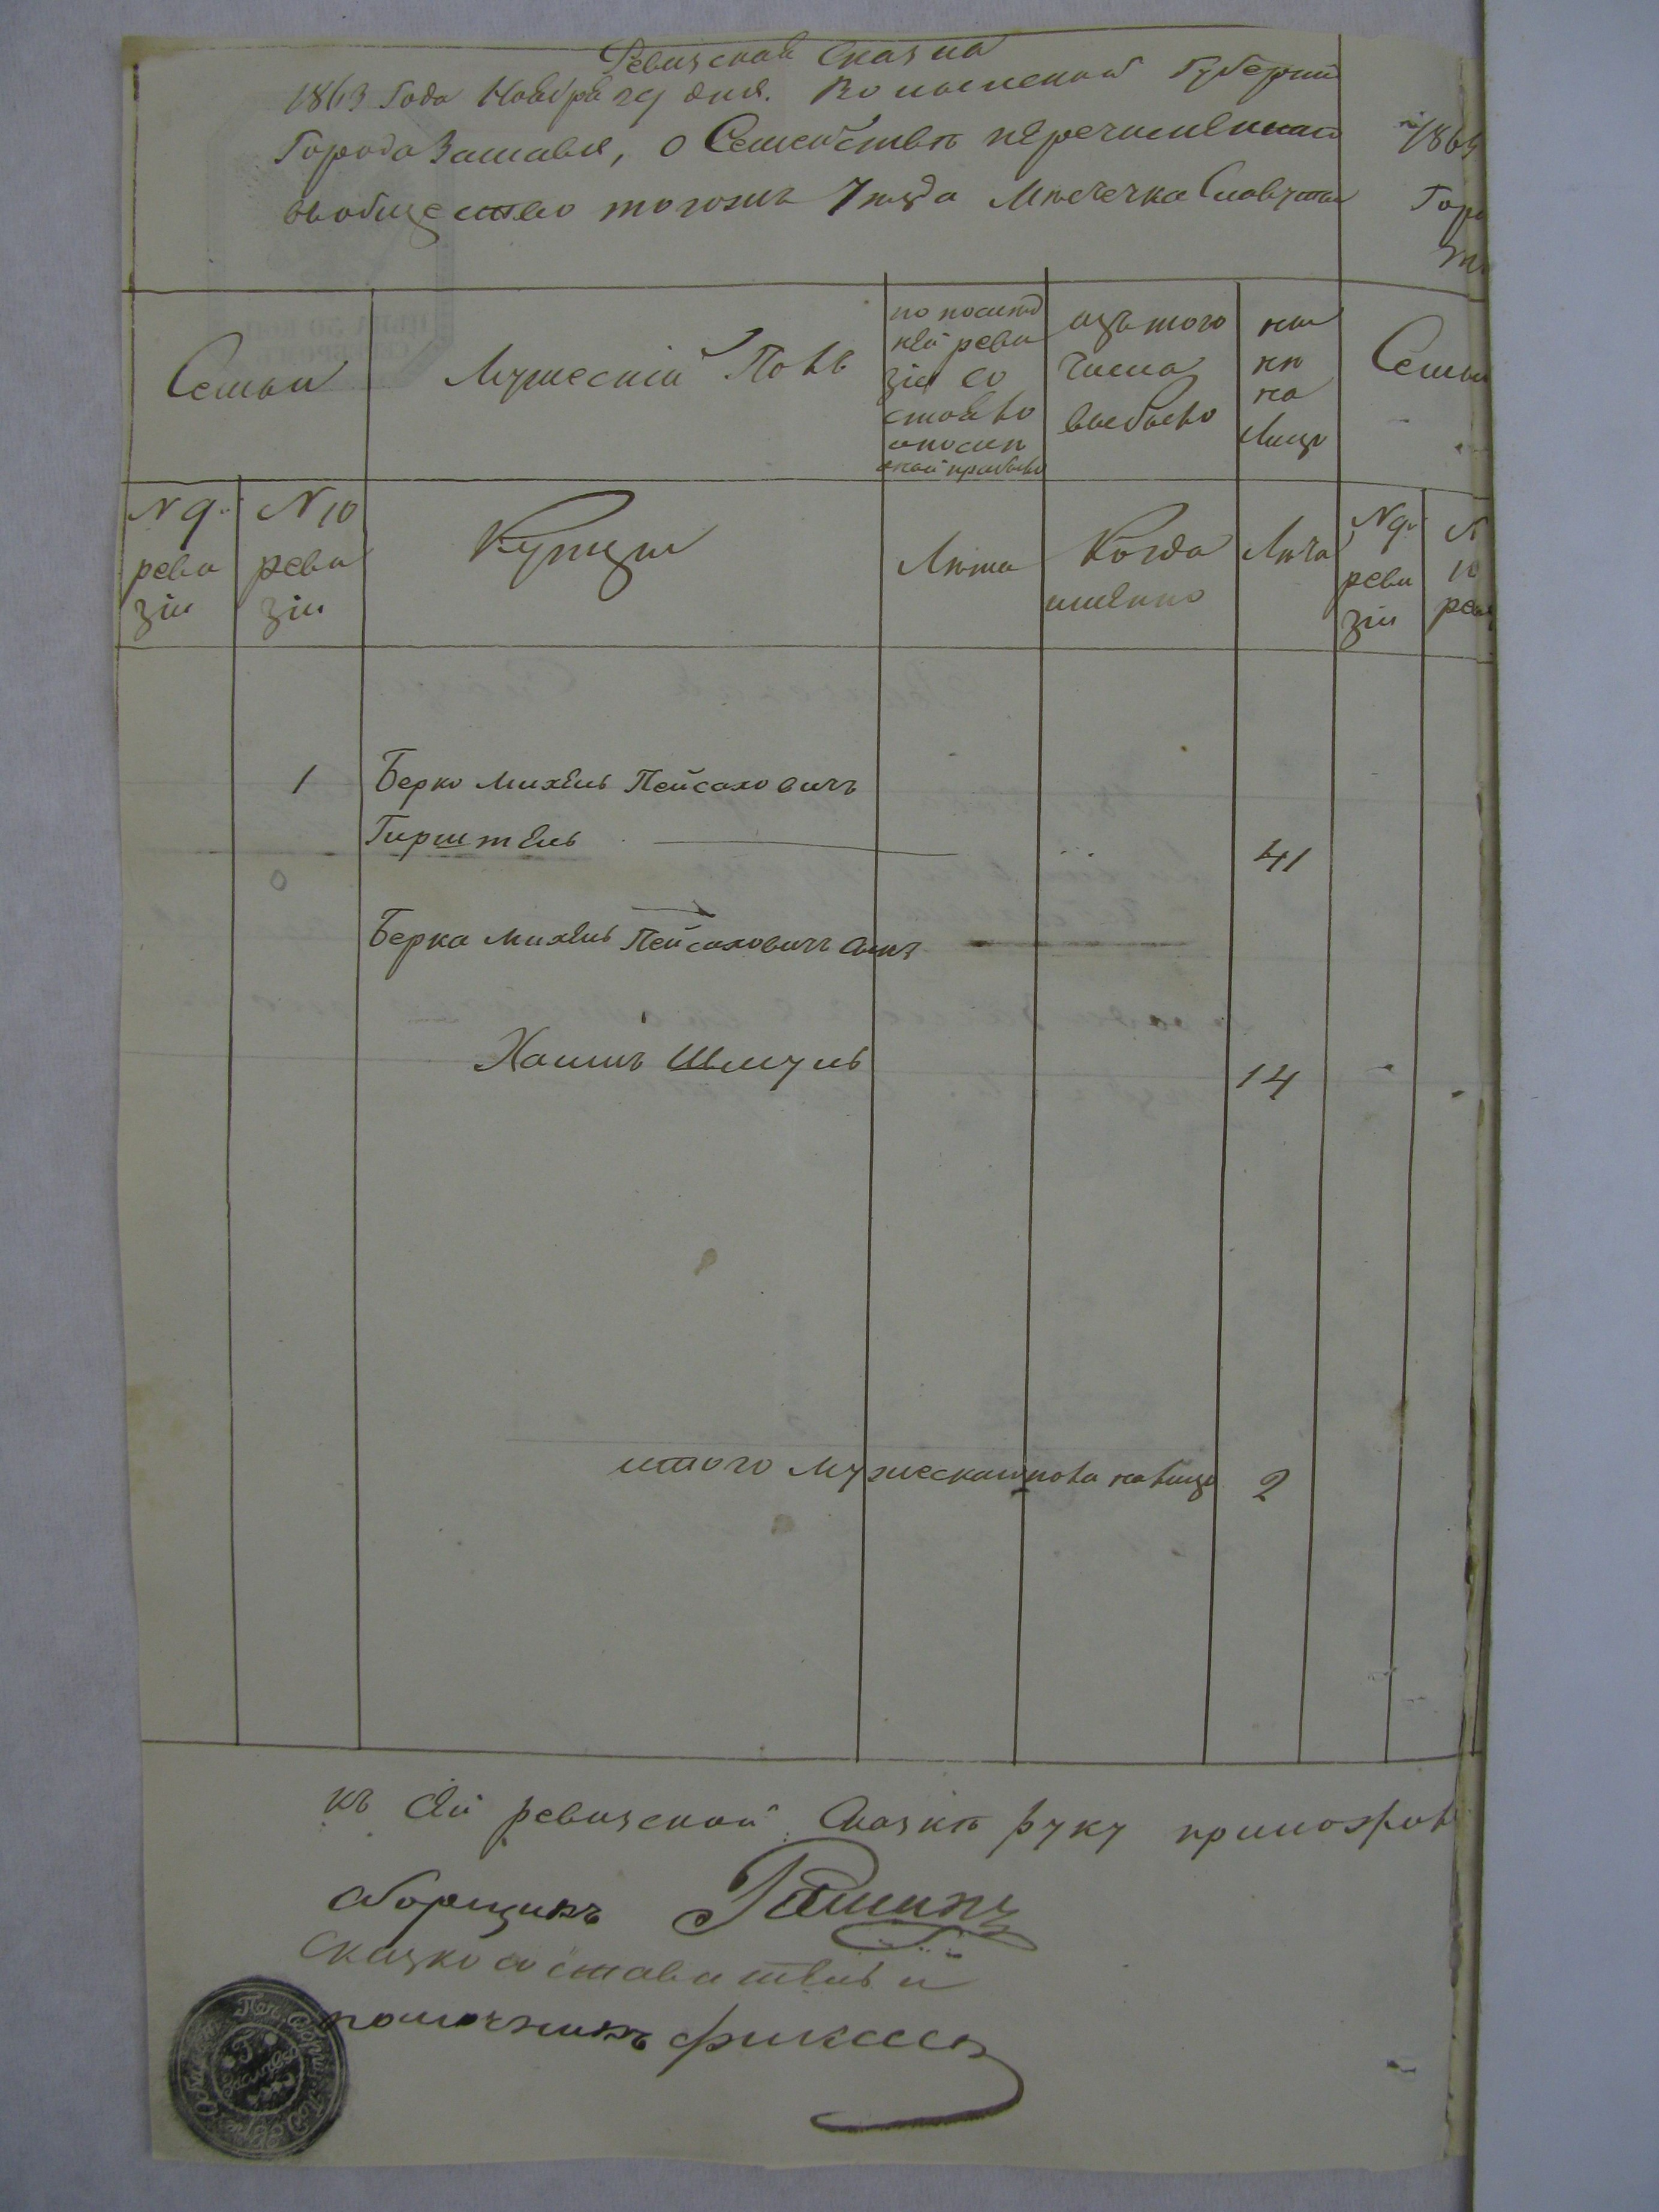 Ревизская Сказка
1863 Года Ноября 29 дня. Волынской Губернии
Города Заславля, о Семействѣ перечисленном
вообщество тогожъ Уезда Мѣстечка Славуты
1863
Горо
Семьи
Мужескій Полъ
по послѣд
ней реви
зіи со
стояло
и после
оной прибыло
изъ того
числа
выбыло
ны
нѣ
на
лицо
Семьи
N 9.
реви
зіи
N 10
реви
зіи
Купцы
Лѣта
Когда
именно
Лѣта
N 9.
реви
зіи
N
10
реви
1
Берко Михель Пейсаховичъ
Гирштель
41
Берка Михель Пейсаховичъ сынъ
Хаимъ Шмуль
14
итого мужескаго пола налицо
2
къ сей ревизской Сказкѣ руку приложилъ
сборщикъ
Сказкосоставитель и
помочникъ